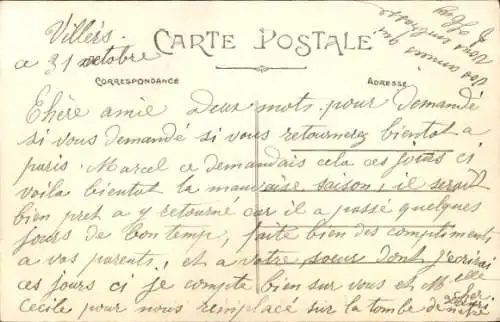 Villers.
CARTE POSTALE
a 31 octobre
vos amies qui
vous
CORRESPONDANCE
ADRESSE
Chère amie Deux mots pour demandé
si vous demandé si vous retournerez bientot a
paris. Marcel ce demandais cela ces jours ci
voila bientot la mauvaise saison, il serait
bien pret a y retourné car il a passé quelques
jours de bon temp, faite bien des compliments
a vos parents, et a votre soeur dont j'ecrirai
ces jours ci je compte bien sur vous et Melle
Cecile pour nous remplacé sur la tombe de